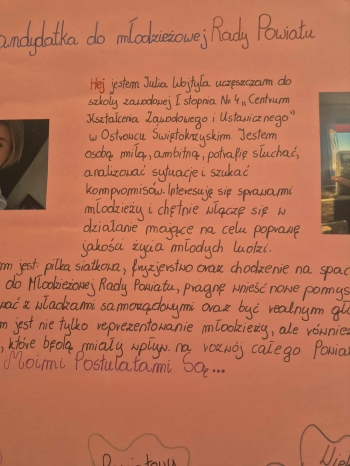 andydatka do młodzieżowej Rady Powiatu
Hej jestem Julia Wojtyła uczęszczam do
szkoły zawodowej I stopnia Nr 4 „Centrum
Kształcenia Zawodowego i Ustawicznego”
w Ostrowcu Świętokrzyskim. Jestem
osobą miłą, ambitną, potrafię słuchać,
analizować sytuacje i szukać
kompromisów. Interesuję się sprawami
młodzieży i chętnie włączę się w
działanie mające na celu poprawę
jakości życia młodych ludzi.
jest: piłka siatkowa, fryzjerstwo oraz chodzenie na spac
do Młodzieżowej Rady Powiatu, pragnę wnieść nowe pomys
wać z władzami samorządowymi oraz być realnym gł
m jest nie tylko reprezentowanie młodzieży, ale również
, które będą miały wpływ na rozwój całego Powia
Moimi Postulatami Są...